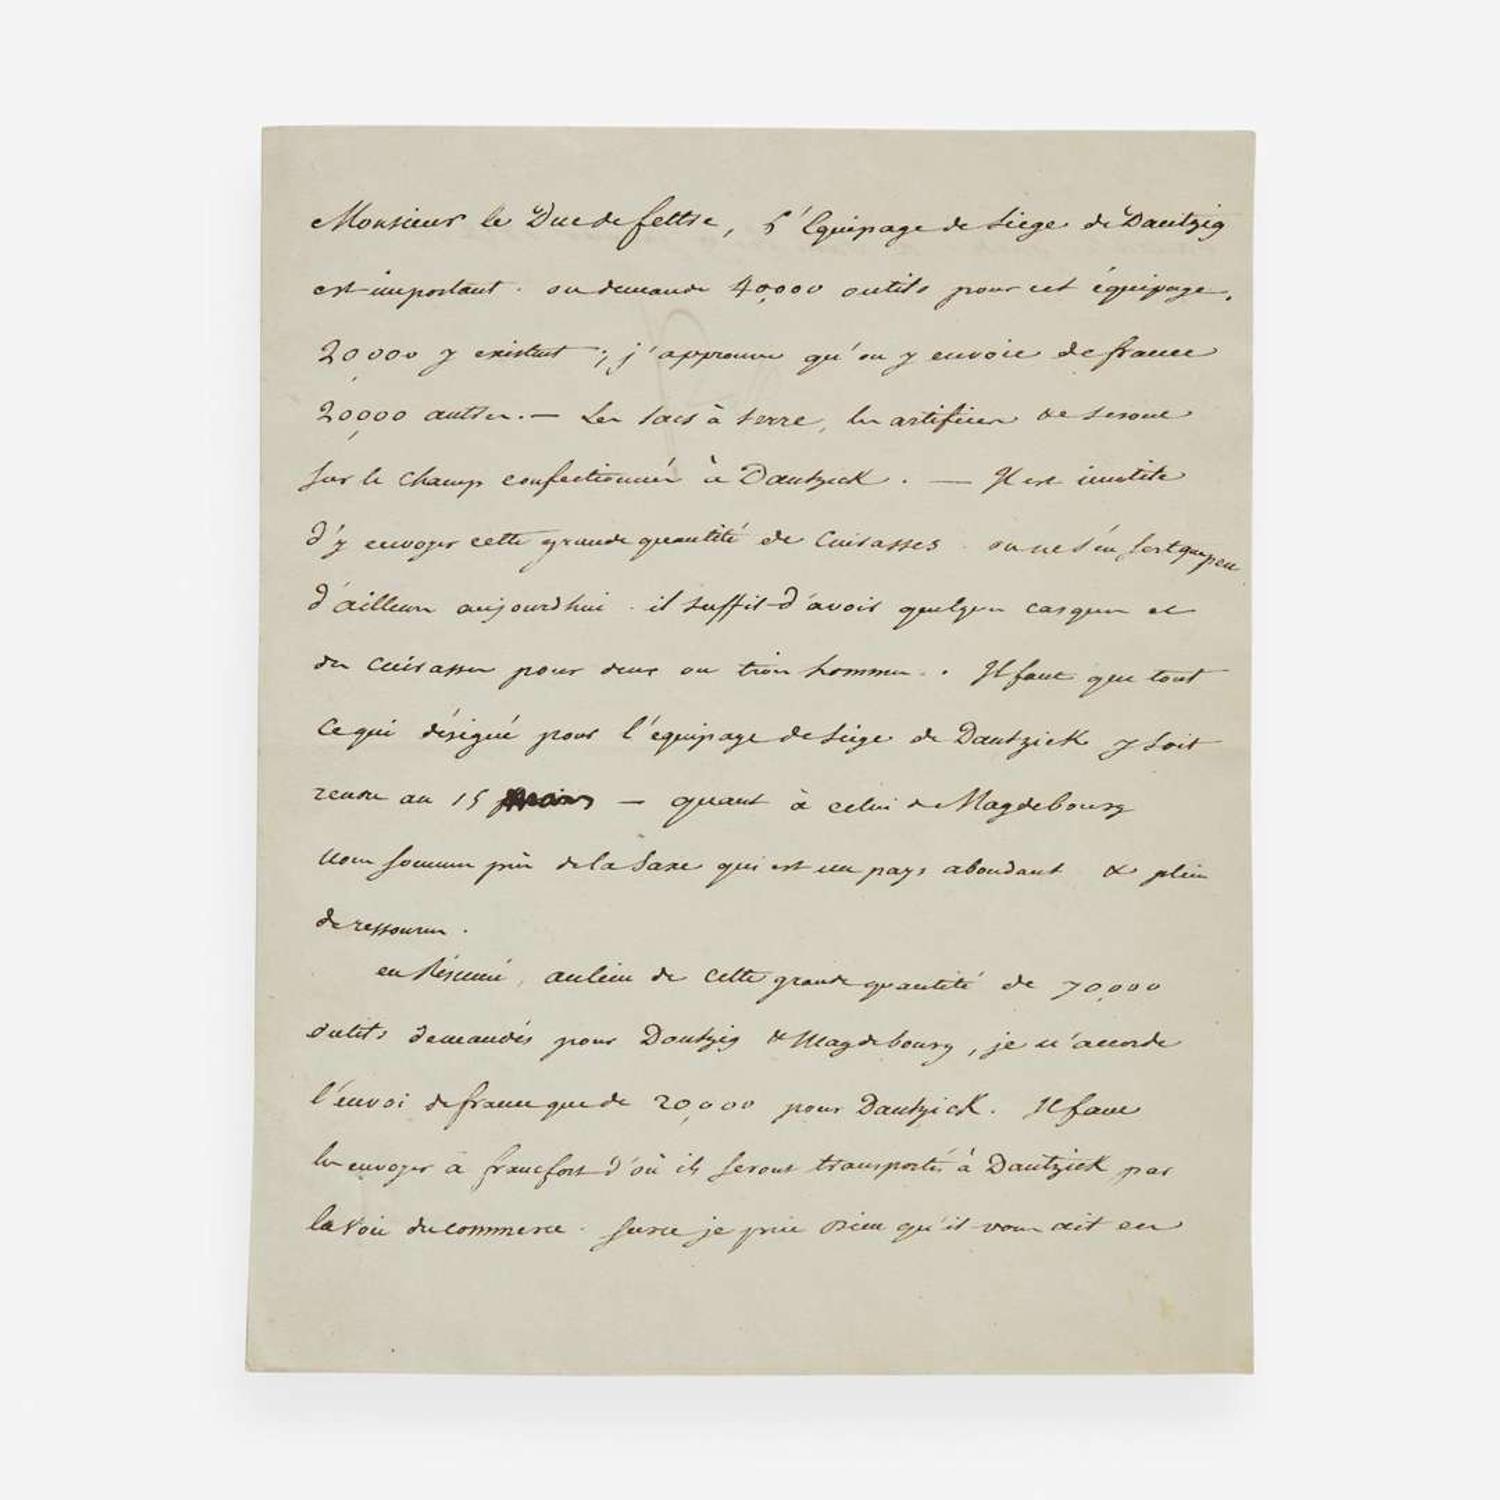 Monsieur le Duc de feltre, l'Equipage de Siege de Dantzig
est important. on demande 40,000 outils pour cet équipage,
20,000 y existent ; j'approuve qu'on y envoie de france
20,000 autres. — Les sacs à terre, les artifices &c seront
sur le champ confectionnés à Dantzick. — Il est inutile
d'y envoyer cette grande quantité de Cuirasses. on ne s'en sert que peu
d'ailleurs aujourdhui. il suffit d'avoir quelques casques et
des cuirasses pour deux ou trois hommes. Il faut que tout
ce qui désigné pour l'équipage de Siège de Dantzick y soit
rendu au 15 mars — quant à celui de Magdebourg
nous sommes près de la Saxe qui est un pays abondant & plein
de ressources.
en Résumé, aulieu de cette grande quantité de 70,000
outils demandés pour Dantzig & Magdebourg, je n'accorde
l'envoi de france que de 20,000 pour Dantzick. Il faut
les envoyer à francfort d'où ils seront transportés à Dantzick par
la voie du commerce. Surce je prie Dieu qu'il vous ait en